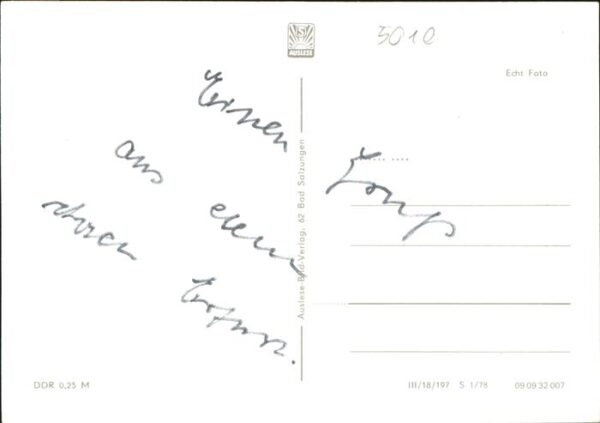 5010
AUSLESE
Echt Foto
Einen Gruß
aus dem
schönen
Erfurt.
Auslese-Bild-Verlag, 62 Bad Salzungen
DDR 0,25 M
III/18/197 S 1/78 09 09 32 007